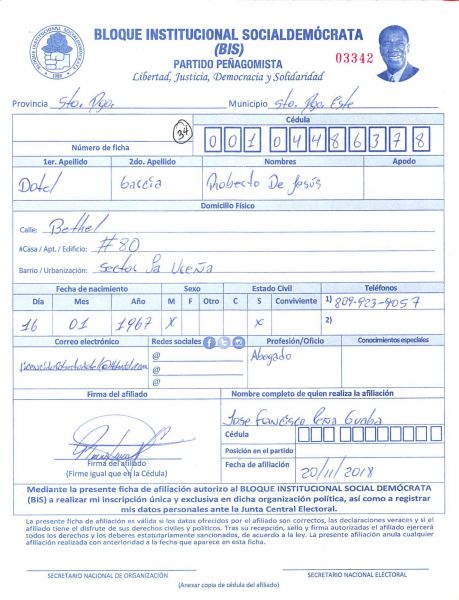 BLOQUE INSTITUCIONAL SOCIALDEMÓCRATA
(BIS)
PARTIDO PEÑAGOMISTA
Libertad, Justicia, Democracia y Solidaridad
03342
Provincia Sto. Dgo. Municipio Sto. Dgo. Este
34
Número de ficha
Cédula
0 0 1 0 4 4 8 6 3 7 8
1er. Apellido 2do. Apellido Nombres Apodo
Dotel García Roberto De Jesús
Domicilio Físico
Calle: Bethel
#Casa / Apt. / Edificio: #80
Barrio / Urbanización: Sector La Ureña
Fecha de nacimiento Sexo Estado Civil Teléfonos
Día Mes Año M F Otro C S Conviviente 1) 809-923-9057
16 01 1967 X X 2)
Correo electrónico Redes sociales Profesión/Oficio Conocimientos especiales
@ Abogado
@
@
Firma del afiliado Nombre completo de quien realiza la afiliación
Jose Francisco Peña Guaba
Cédula
Posición en el partido
Firma del afiliado
(Firme igual que en la Cédula)
Fecha de afiliación 20/11/2018
Mediante la presente ficha de afiliación autorizo al BLOQUE INSTITUCIONAL SOCIAL DEMÓCRATA
(BIS) a realizar mi inscripción única y exclusiva en dicha organización política, así como a registrar
mis datos personales ante la Junta Central Electoral.
La presente ficha de afiliación es válida si los datos ofrecidos por el afiliado son correctos, las declaraciones veraces y si el
afiliado tiene el disfrute de sus derechos civiles y políticos. Tras su recepción, sello y firma autorizada el afiliado ejercerá
todos los derechos y los deberes estatutariamente sancionados, de acuerdo a la ley. La presente afiliación anula cualquier
afiliación realizada con anterioridad a la fecha que aparece en esta ficha.
SECRETARIO NACIONAL DE ORGANIZACIÓN SECRETARIO NACIONAL ELECTORAL
(Anexar copia de cédula del afiliado)